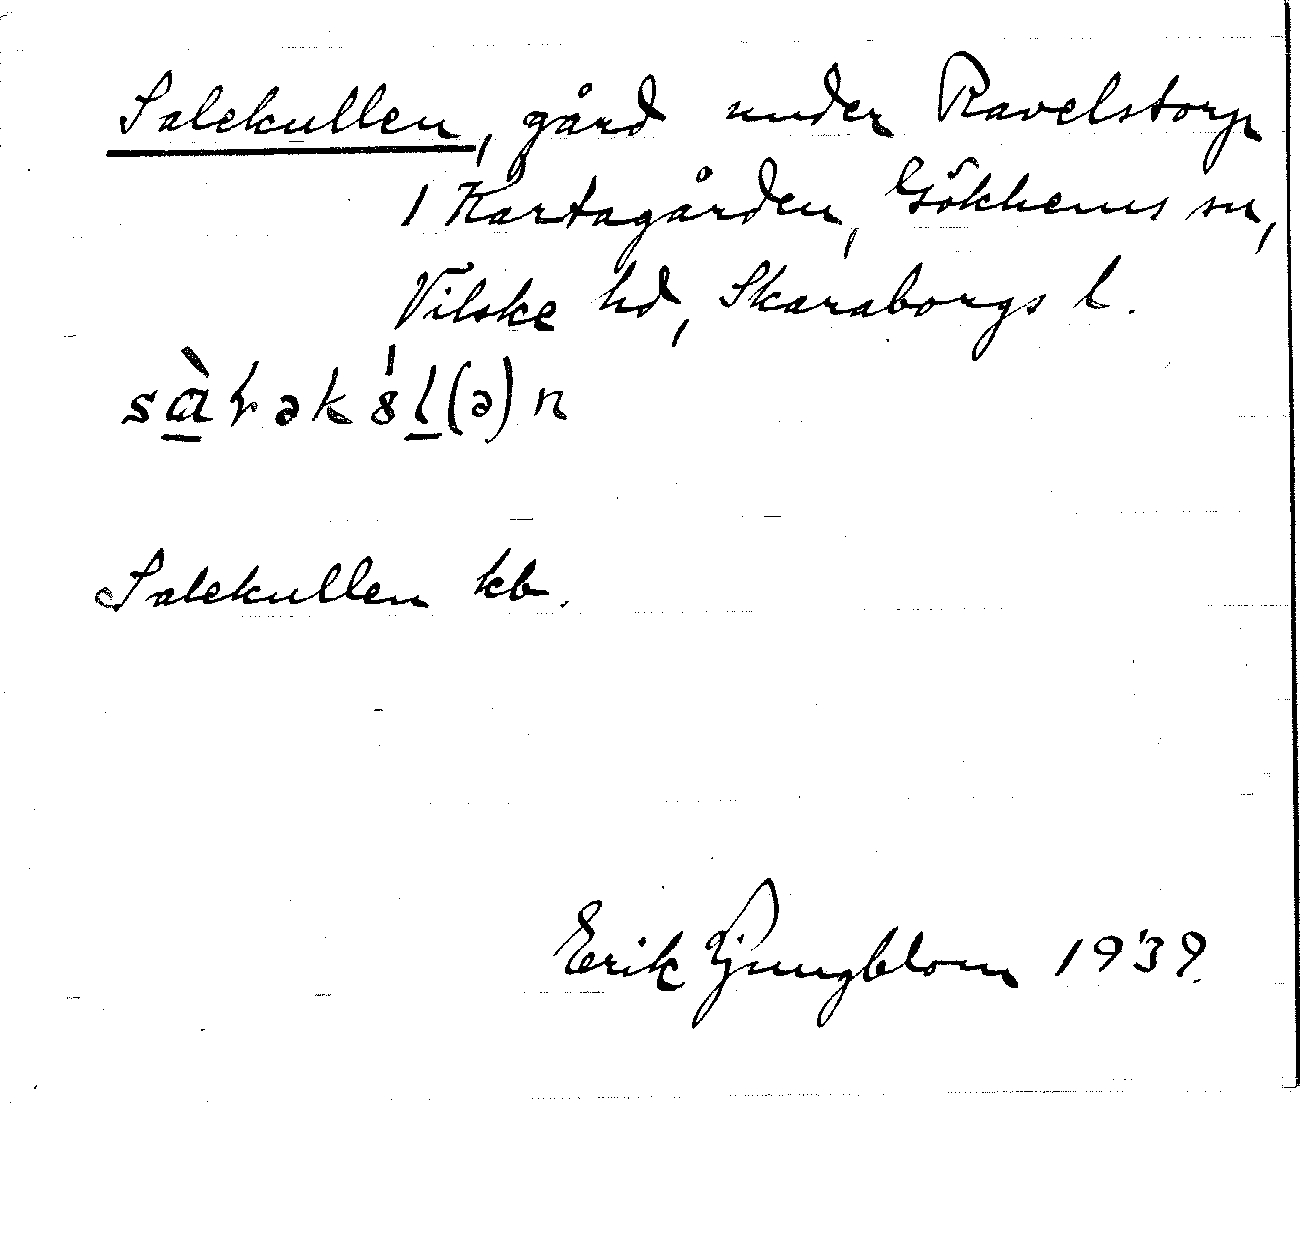 Salekullen, gård under Ravelstorp
1 Kartagården, Gökhems sn,
Vilske hd, Skaraborgs l.
Salekullen kb.
Erik Ljungblom 1939.